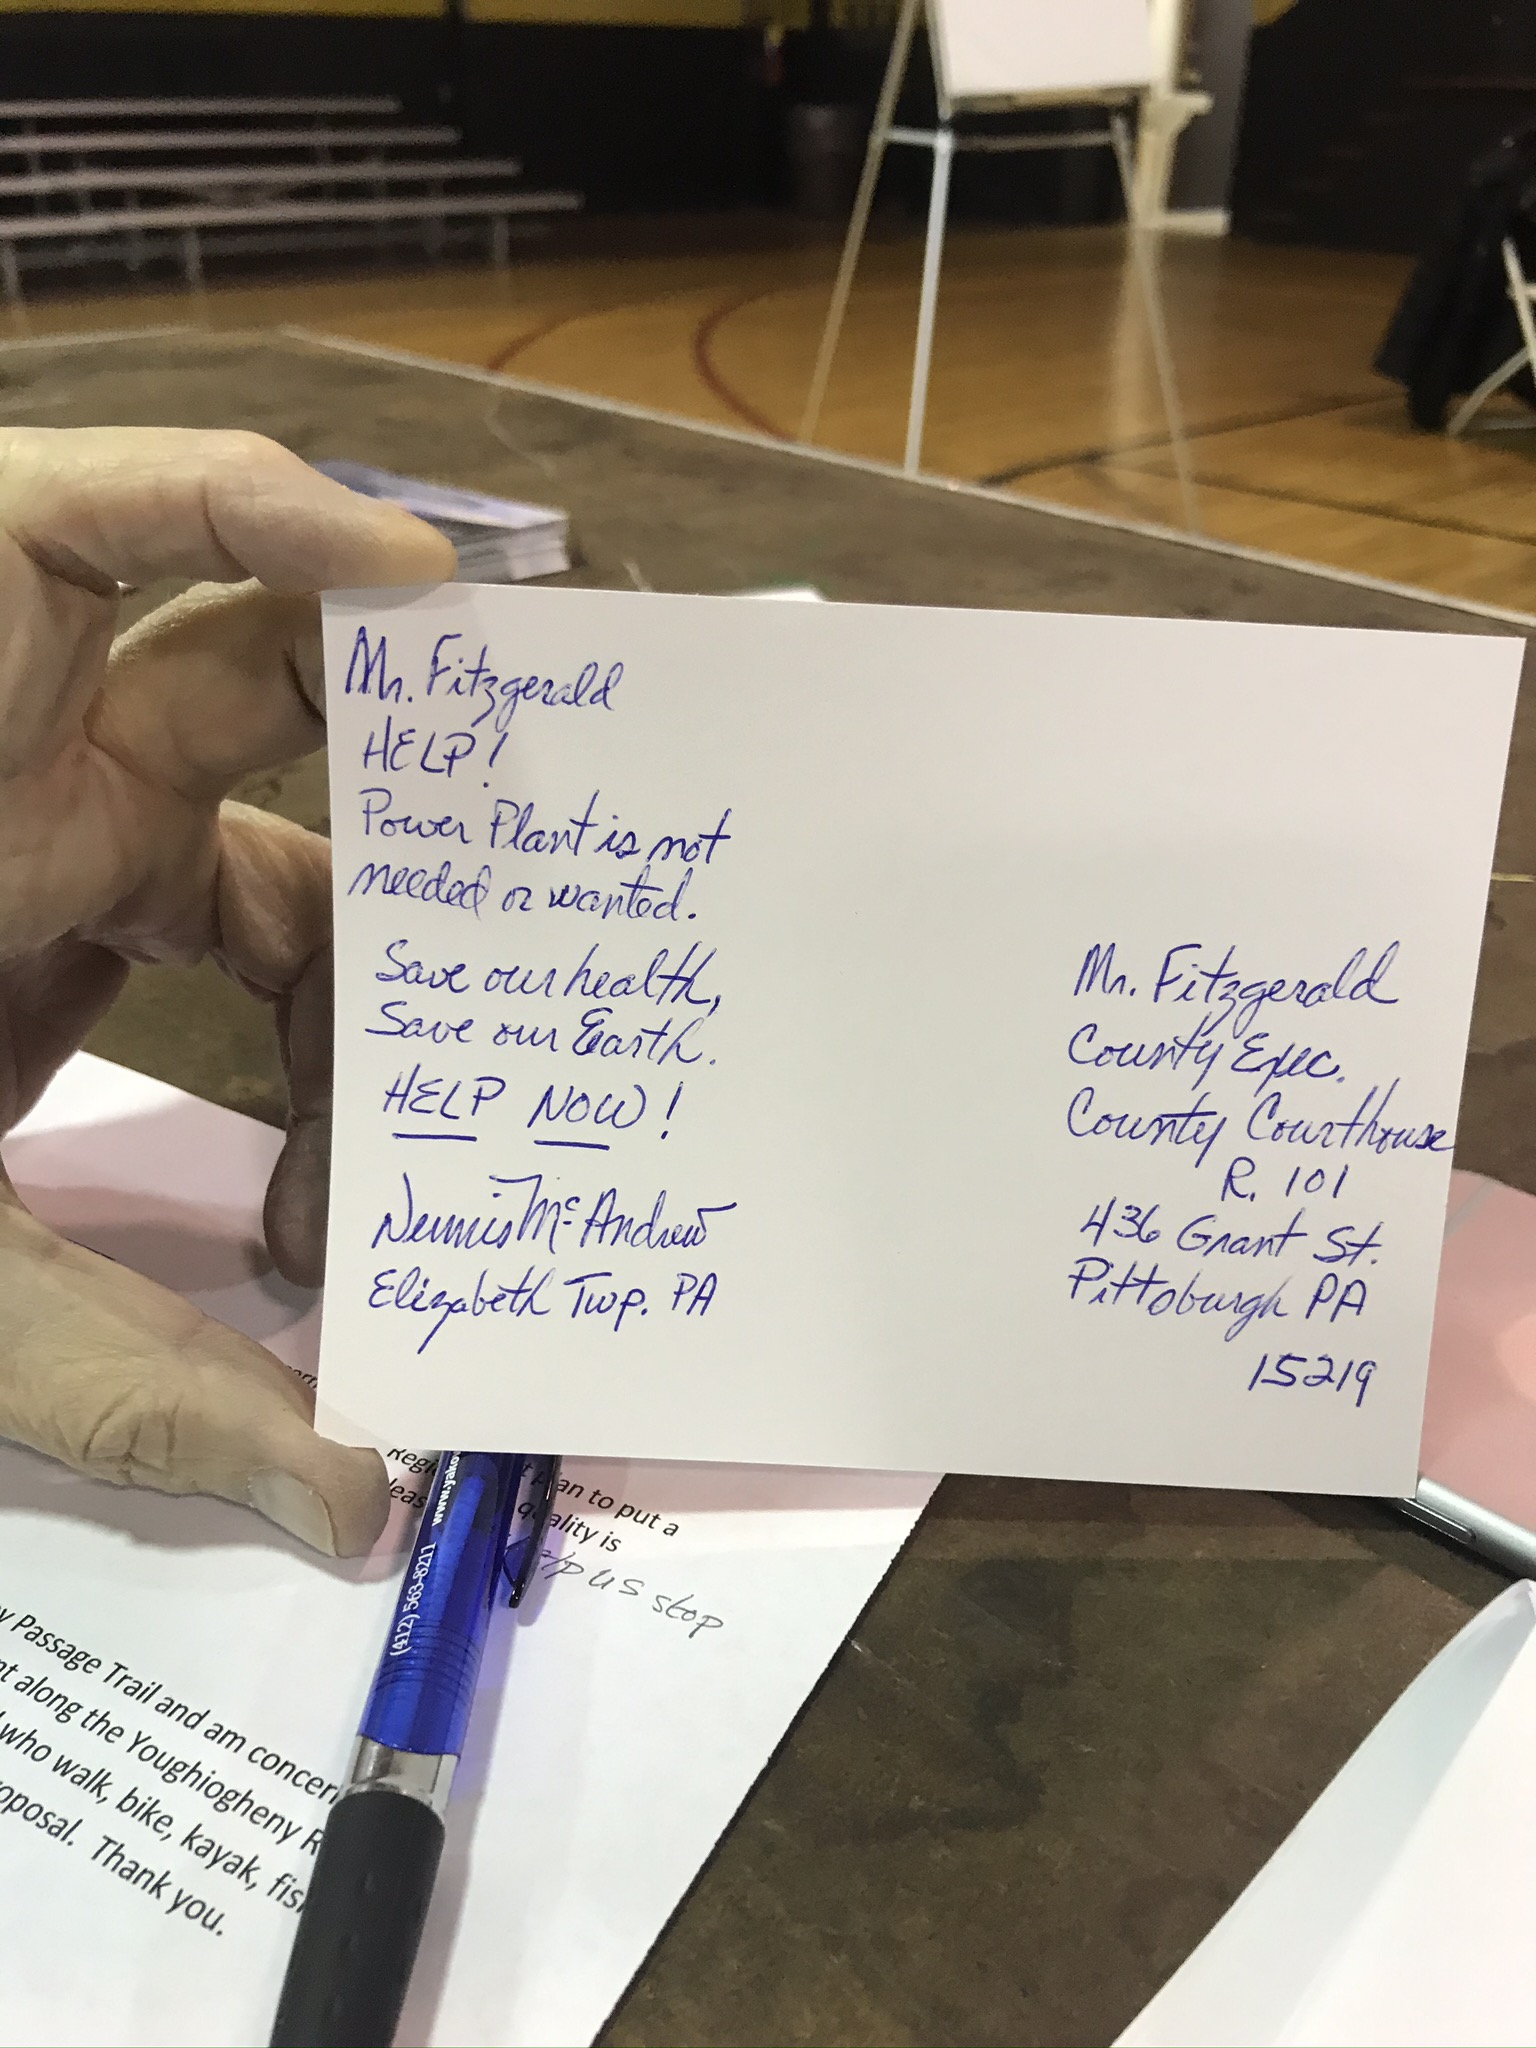 Mr. Fitzgerald
HELP!
Power Plant is not
needed or wanted.
Save our health,
Save our Earth.
HELP NOW!
Dennis McAndrew
Elizabeth Twp. PA
Mr. Fitzgerald
County Exec.
County Courthouse
R. 101
436 Grant St.
Pittsburgh PA
15219
an to put a
ality is
us stop
(412) 563-8211 www.yako
Passage Trail and am concer
along the Youghiogheny R
who walk, bike, kayak, fis
oposal. Thank you.